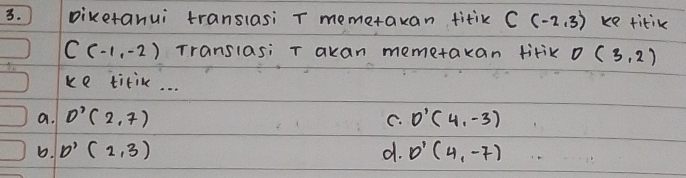 3. Diketahui translasi T memetakan titik C (-2,3) ke titik
C (-1,-2) Translasi T akan memetakan titik D (3,2)
ke titik ...
a. D'(2,7) c. D'(4,-3)
b. D' (2,3) d. D'(4,-7)